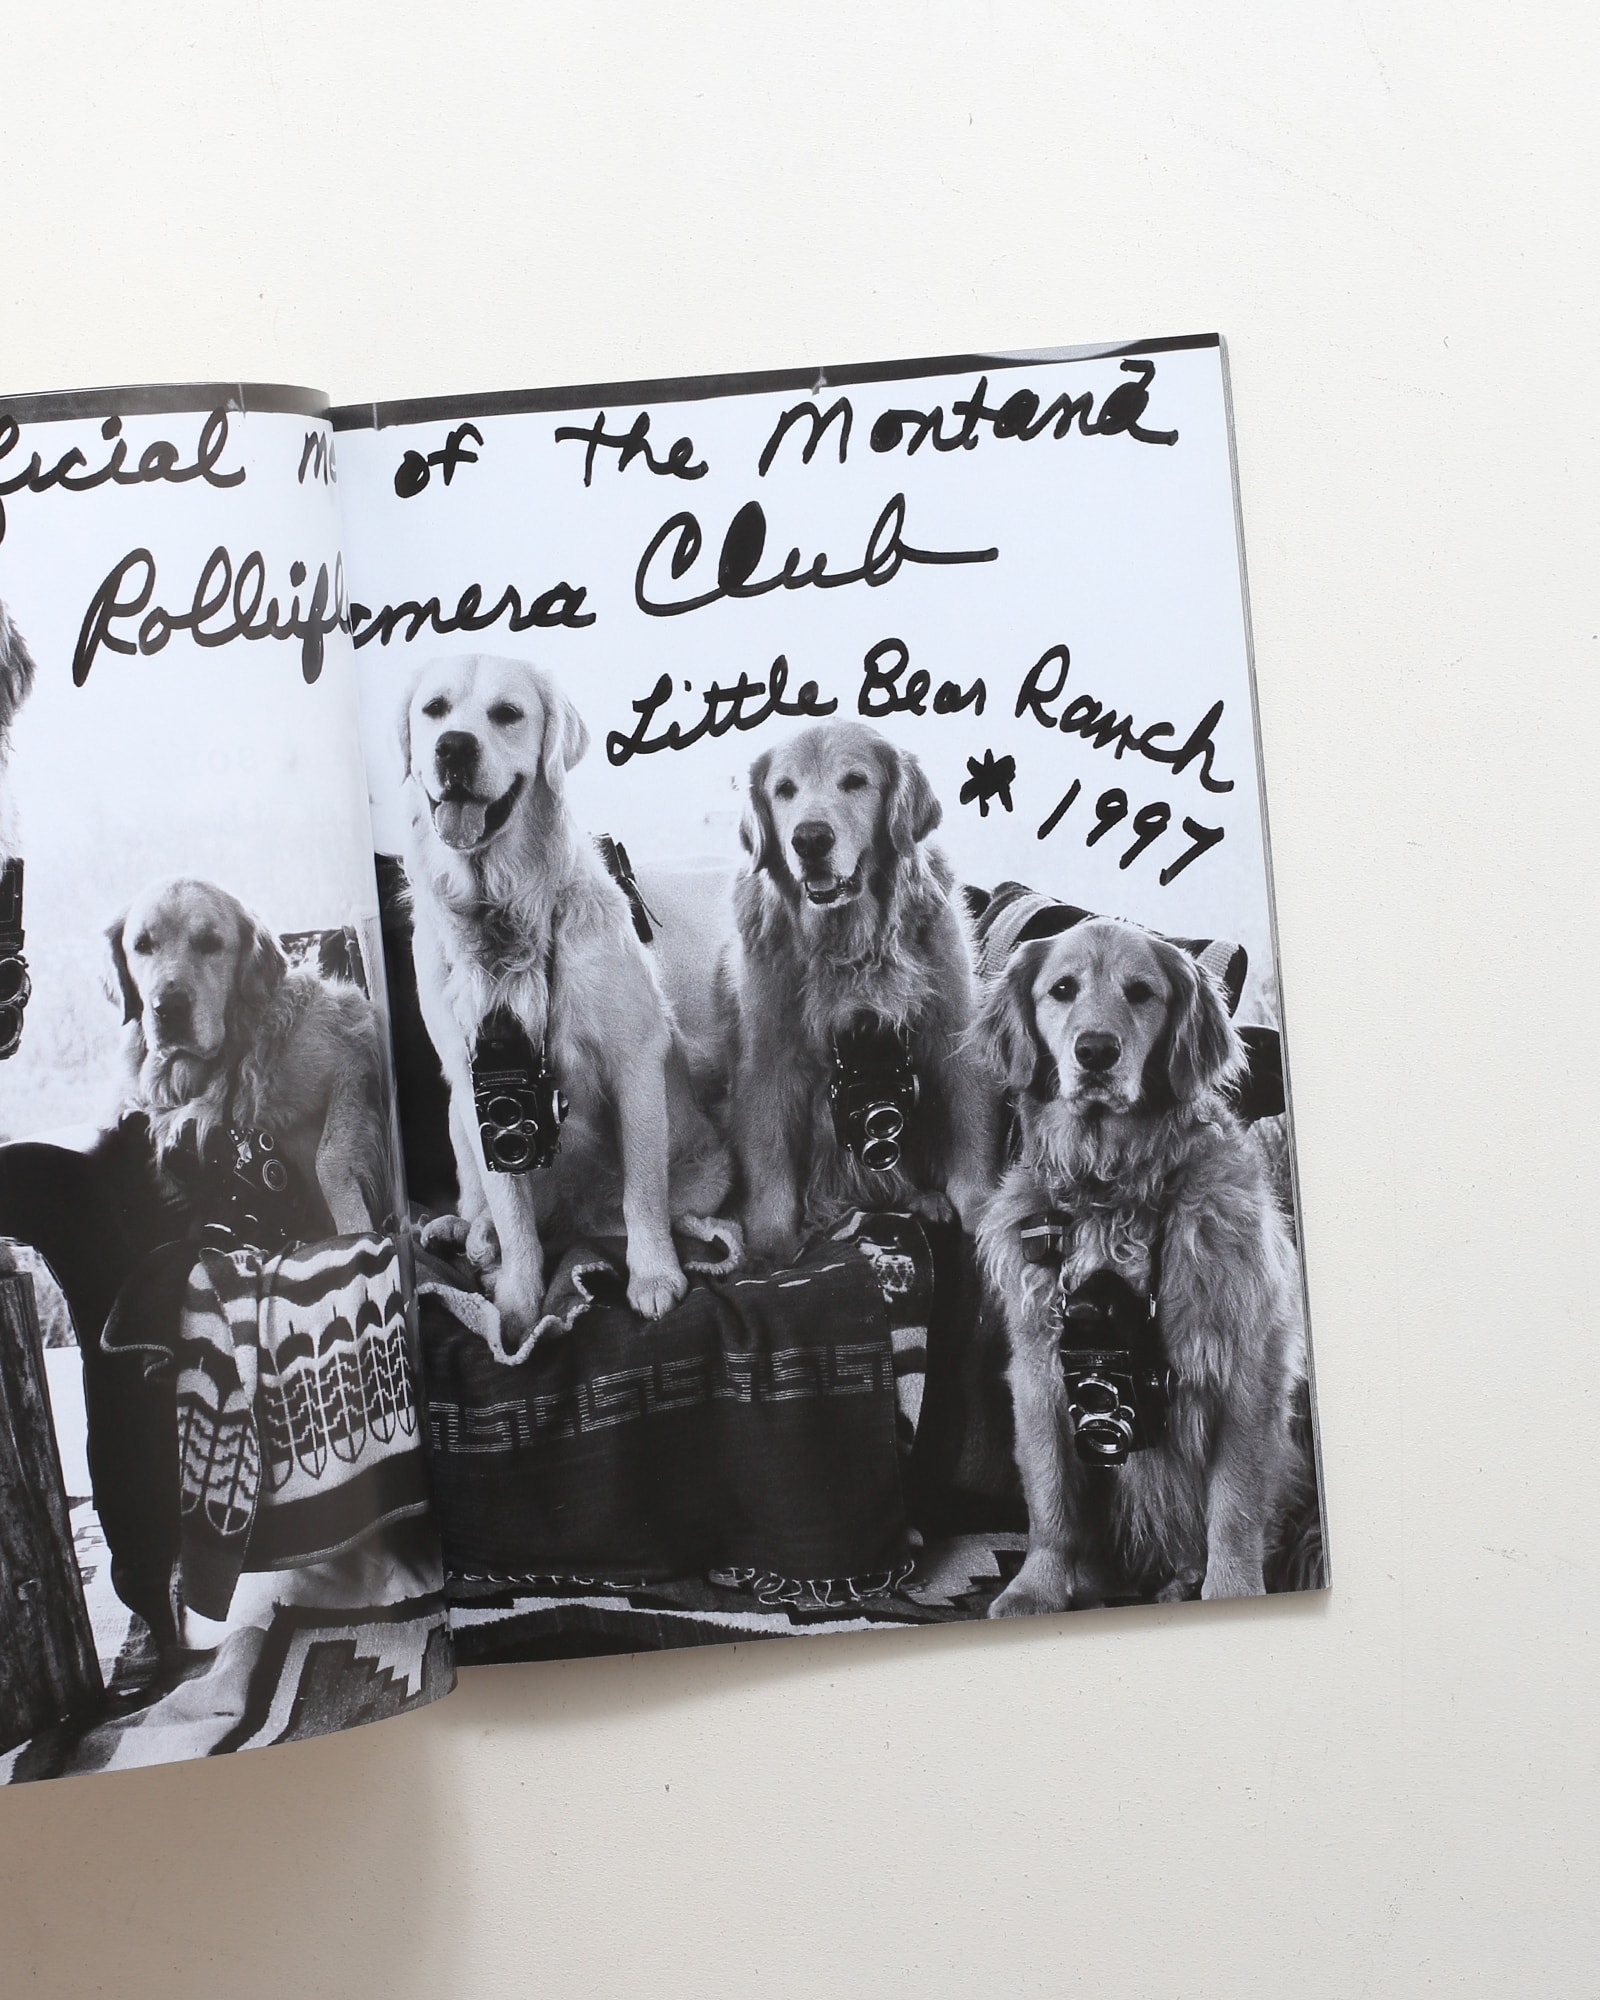 ficial me of the Montana
Rolleifl amera Club
Little Bear Ranch
* 1997